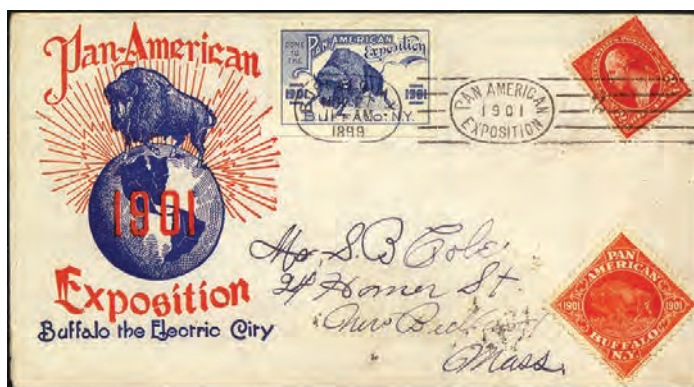 Pan-American
1901
Exposition
Buffalo the Electric City
COME TO THE
PAN-AMERICAN
Exposition
1901 1901
BUFFALO. N.Y.
1899
PAN AMERICAN
1901
EXPOSITION
Mr. S. B. Cole.
24 Homer St.
New
Mass.
PAN
AMERICAN
1901 1901
BUFFALO
N.Y.